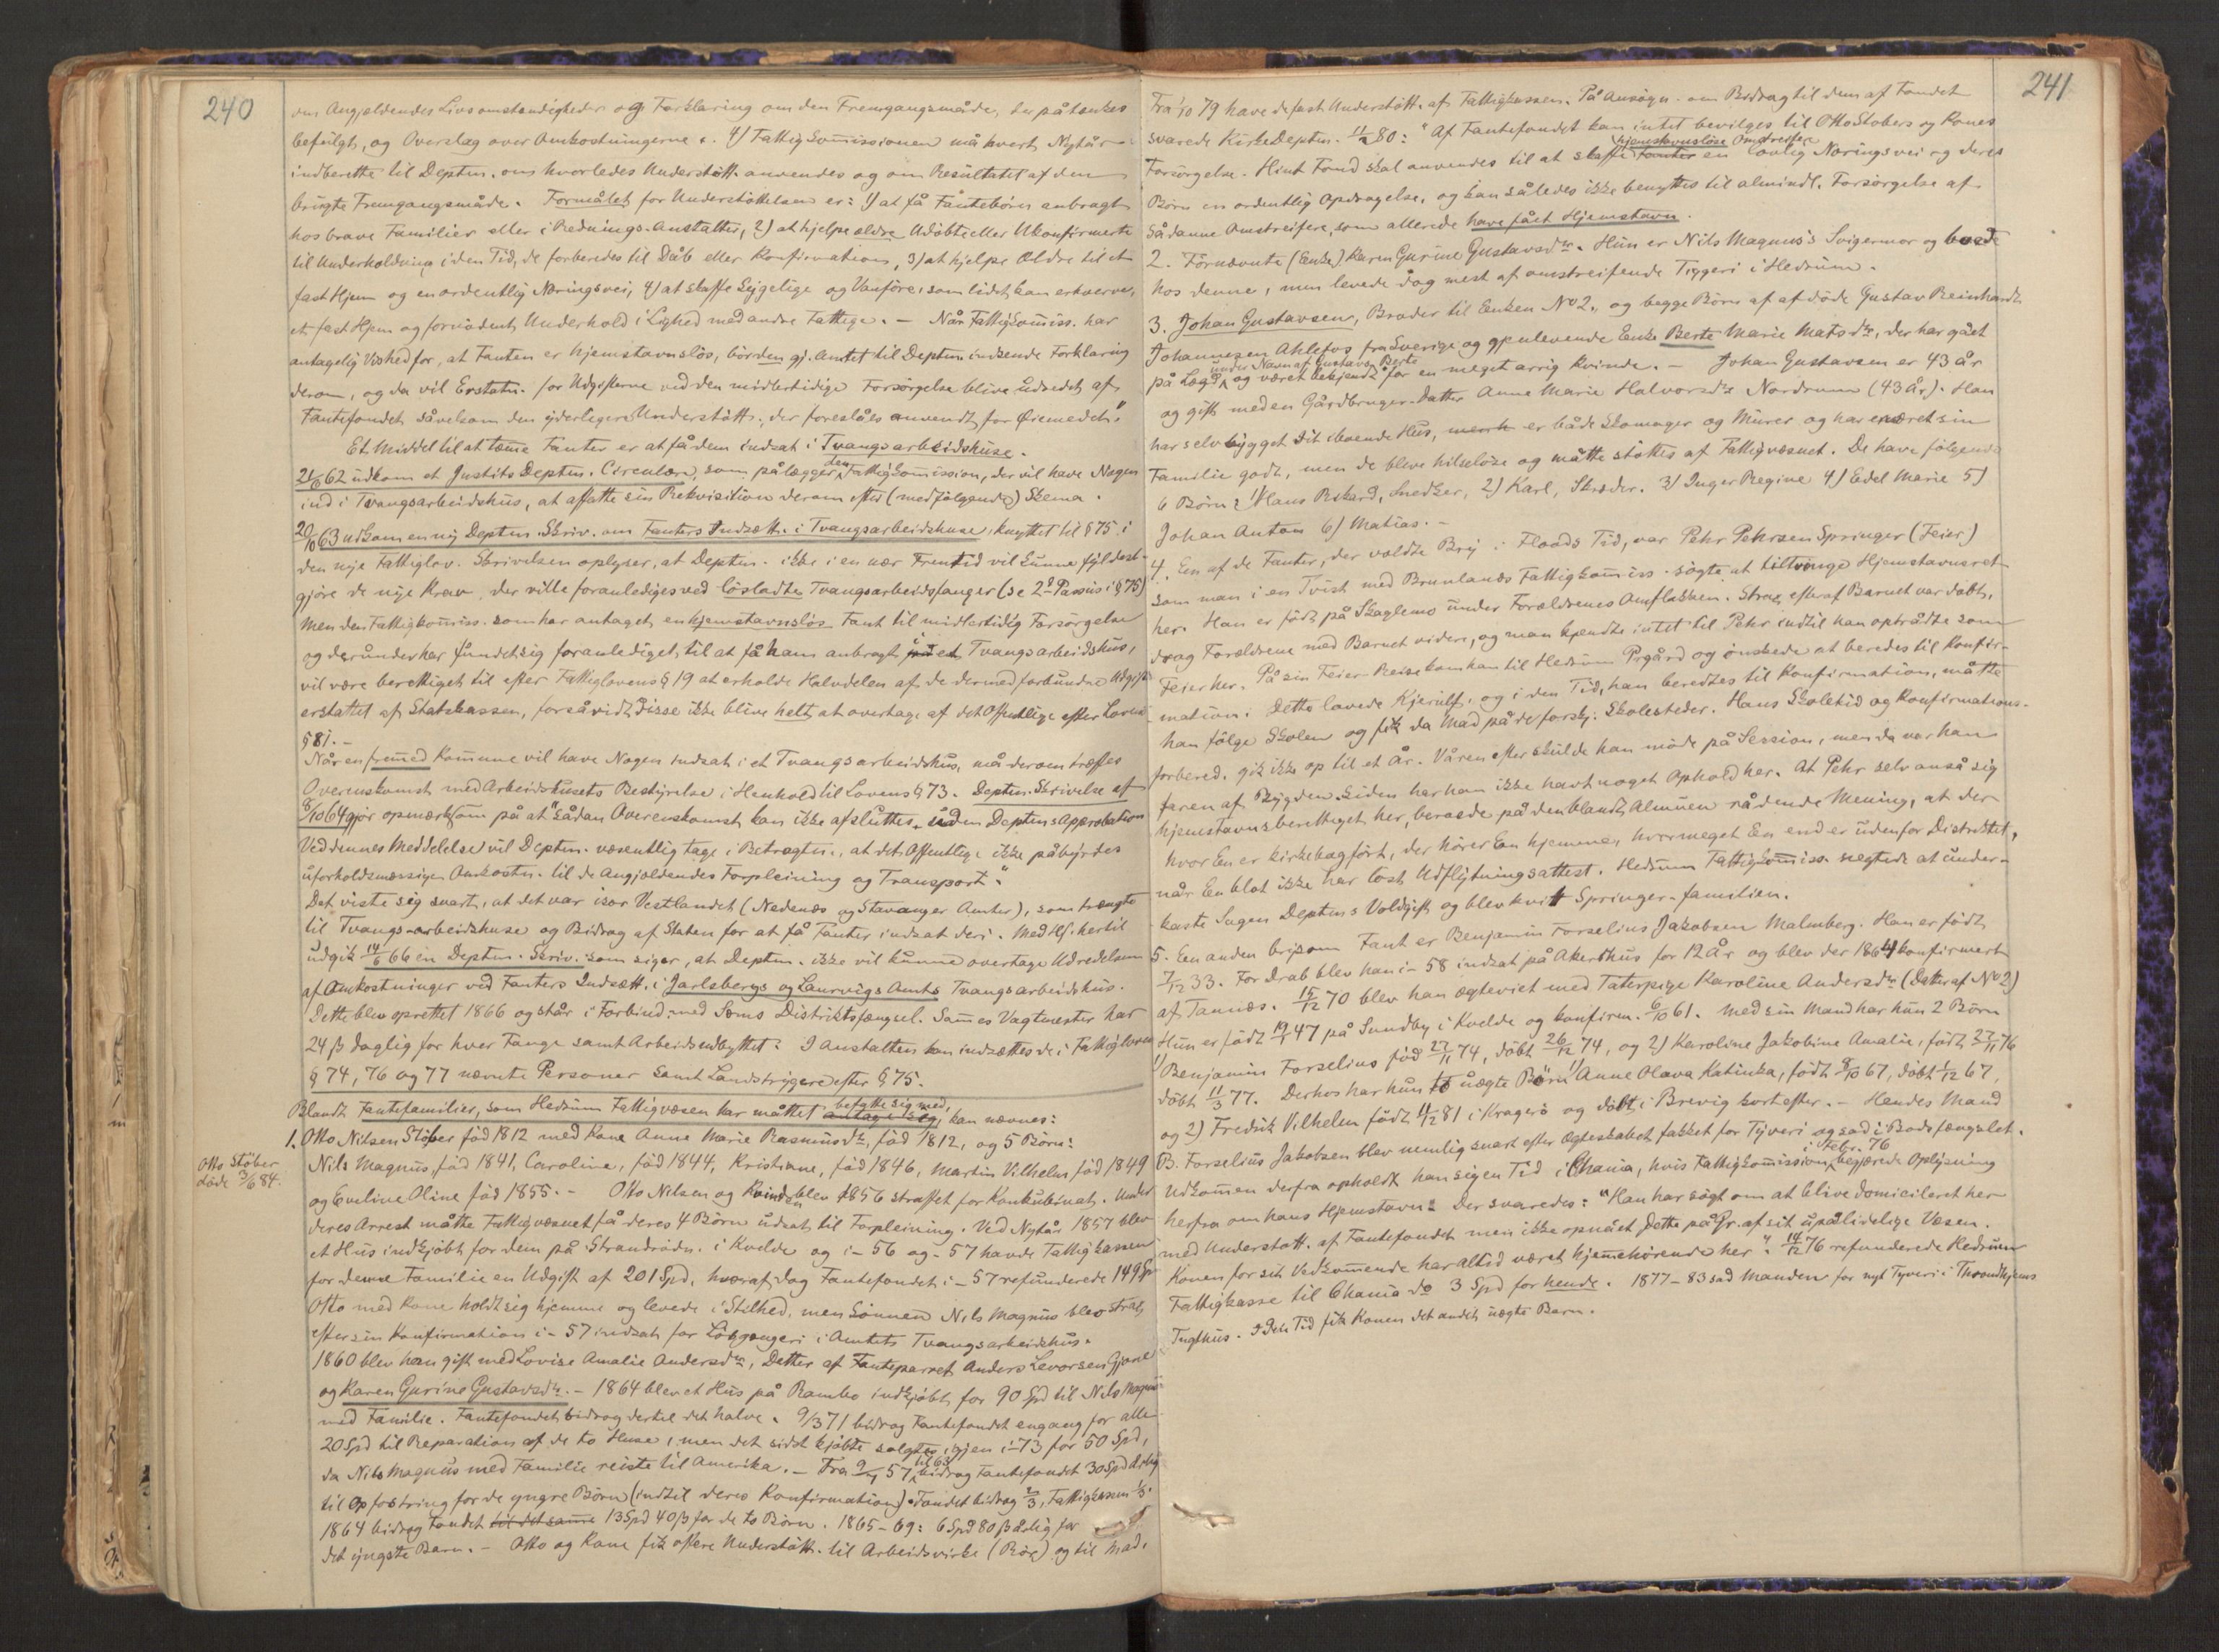 240
om Angjeldendes Livsomstændigheder og Forklaring om den Fremgangsmåde, der påtænkes
befulgt, og Overslag over Omkostningerne &. 4) Fattigkom̄issionen må hvert Nytår
indberette til Deptm. om hvorledes Understött. anvendes og om Resultatet af den
brugte Fremgangsmåde. Formålet for Understöttelsen er: 1) at få Fantebörn anbragt
hos brave Familier eller i Rednings-Anstalter, 2) at hjelpe ældre Udöbte eller Ukonfirmerte
til Underholdning i den Tid, de forberedes til Dåb eller Konfirmation, 3) at hjelpe Ældre til et
fast Hjem og en ordentlig Næringsvei, 4) at skaffe Sygelige og Vanföre, som lidet kan erhverve,
et fast Hjem og fornödent Underhold i Lighed med andre Fattige. — Når Fattigkom̄iss. har
antagelig Vished for, at Fanten er hjemstavnslös, bör den gj. Amtet til Deptm. indsende Forklaring
derom, og da vil Erstatn. for Udgifterne ved den midlertidige Forsörgelse blive udredet af
Fantefondet såvelsom den yderligere Understött. der foreslåes anvendt for Öiemedet."
Et Middel til at tæmme Fanter er at få dem indsat i Tvangsarbeidshuse.
21/6 62 udkom et Justits Deptm. Circulære, som pålægger den Fattigkom̄ission, der vil have Nogen
ind i Tvangsarbeidshus, at affatte sin Rekvisition derom efter (medfölgende) Skema.
20/10 63 udkom en ny Deptm. Skriv. om Fanters Indsætt. i Tvangsarbeidshuse, knyttet til § 75 i
den nye Fattiglov. Skrivelsen oplyser, at Deptm. ikke i en nær Fremtid vil kunne fyldest-
gjöre de nye Krav, der ville foranlediges ved lösladte Tvangsarbeidsfanger (se 2d Passus i § 75)
Men den Fattigkom̄iss. som har antaget en hjemstavnslös Fant til midlertidig Forsörgelse
og derunder har fundet sig foranlediget til at få ham anbragt i et Tvangsarbeidshus,
vil være berettiget til efter Fattiglovens § 19 at erholde Halvdelen af de dermed forbundne Udgift
erstattet af Statskassen, forsåvidt disse ikke blive helt at overtage af det Offentlige efter Lovens
§ 81. -
Når en frem̄ed Kom̄une vil have Nogen indsat i et Tvangsarbeidshus, må derom træffes
Overenskomst med Arbeidshusets Bestyrelse i Henhold til Lovens § 73. Deptm. Skrivelse af
8/10 64 gjör opmærksom på at "sådan Overenskomst kan ikke afsluttes uden Deptms Approbation
Ved dennes Meddelelse vil Deptm. væsentlig tage i Betragtn. at det Offentlige ikke påbyrdes
uforholdsmæssige Omkostn. til de Angjældendes Forpleining og Transport."
Det viste sig snart, at det var især Vestlandet (Nedenæs og Stavanger Amter), som trængte
til Tvangs-arbeidshuse og Bidrag af Staten for at få Fanter indsat deri. Med Hs. hertil
udgik 14/6 66 en Deptm. Skriv. som siger, at Deptm. ikke vil kunne overtage Udredelsen
af Omkostninger ved Fanters Indsætt. i Jarlsbergs og Laurvigs Amts Tvangsarbeidshus.
Dette blev oprettet 1866 og står i Forbind. med Sems Distriktsfængsel. Sam̄es Vagtmester har
24 ß daglig for hver Fange samt Arbeidsudbyttet. I Anstalten kan indsættes de i Fattigloven
§ 74, 76 og 77 nævnte Personer samt Landstrygere efter § 75.
Blandt Fantefamilier, som Hedrum Fattigvæsen har måttet antage sig befatte sig med, kan nævnes:
1. Otto Nilsen Stöber föd 1812 med Kone Anne Marie Rasmusdtr, föd 1812, og 5 Börn:
Otto Stöber
döde 3/6 84.
Nils Magnus, föd 1841, Caroline, föd 1844, Kristiane, föd 1846, Martin Vilhelm föd 1849
og Eveline Oline föd 1855. - Otto Nilsen og Kvinden blev 1856 straffet for Konkubinat. Under
deres Arrest måtte Fattigvæsnet få deres 4 Börn udsat til Forpleining. Ved Nytår 1857 blev
et Hus indkjöbt for dem på Strandrödn. i Kvelde og i - 56 og - 57 havde Fattigkassen
for denne Familie en Udgift af 201 Spd, hvoraf dog Fantefondet i - 57 refunderede 149 Sp
Otto med Kone holdt sig hjemme og levede i Stilhed, men Sönnen Nils Magnus blev strax
efter sin Konfirmation i - 57 indsat for Lösgjængeri i Amtets Tvangsarbeidshus.
1860 blev han gift med Lovise Amalie Andersdtr, Datter af Fanteparret Anders Levorsen Gjone
og Karen Gurine Gustavsdtr. - 1864 blev et Hus på Rambo indkjöbt for 90 Spd til Nils Magnus
med Familie. Fantefondet bidrog dertil det halve. 9/3 71 bidrog Fantefondet engang for alle
20 Spd til Reparation af de to Huse, men det sidst kjöbte solgtes igjen i -73 for 50 Spd,
da Nils Magnus med Familie reiste til Amerika. - Fra 9/1 57 til 63 bidrog Fantefondet 30 Spd årlig
til Opfostring for de yngre Börn (indtil deres Konfirmation). Fondet bidrog 2/3, Fattigkassen 1/3.
1864 bidrog Fondet til det samme 13 Spd 40 ß for de to Börn. 1865 - 69: 6 Spd 80 ß årlig for
det yngste Barn. - Otto og Kone fik oftere Understött. til Arbeidsvirke (Rör) og til Mad.
241
Fra 1/10 79 have de fast Understött. af Fattigkassen. På Ansögn. om Bidrag til dem af Fondet
svarede KirkeDeptm. 11/2 80: "Af Fantefondet kan intet bevilges til Otto Stobers og Kones
Forsörgelse. Hint Fond skal anvendes til at skaffe fanter hjemstavnslöse Omstreifere en lovlig Næringsvei og deres
Börn en ordentlig Opdragelse, og kan således ikke benyttes til almindl. Forsörgelse af
sådanne Omstreifere, som allerede have fået Hjemstavn.
2. Förnævnte (Enke) Karen Gurine Gustavsdtr. Hun er Nils Magnus's Svigermor og boede
hos denne, men levede dog mest af omstreifende Tiggeri i Hedrum.
3. Johan Gustavsen, Broder til Enken No 2, og begge Börn af afdöde Gustav Reinhardt
Johannesen Ahlefos fra Sverige og gjenlevende Enke Berte Marie Matsdtr, der har gået
på Lægd og været bekjendt under Navn af Gustavs Berte for en meget arrig Kvinde. - Johan Gustavsen er 43 år
og gift med en Gårdbruger-Datter Anne Marie Halvorsdtr Nordrum (43 år). Han
har selv bygget sit iboende Hus, er både Skomager og Murer og har ernæret sin
Familie godt, men de bleve hilselöse og måtte stöttes af Fattigvæsnet. De have fölgende
6 Börn: 1) Hans Rikard, Snedker, 2) Karl, Skræder. 3) Inger Regine 4) Edel Marie 5)
Johan Anton 6) Matias. -
4. En af de Fanter, der voldte Bry i Floods Tid, var Pehr Pehrsen Springer (Feier)
som man i en Tvist med Brunlanæs Fattigkom̄iss. sögte at tiltvinge Hjemstavnsret
her. Han er födt på Skaglemo under Forældrenes Omflakken. Strax efter af Barnet var döbt,
drog Forældrene med Barnet videre, og man kjendte intet til Pehr indtil han optrådte som
Feier her. På sin Feier-Reise kom han til Hedrum Prgård og önskede at beredes til Konfir-
mation. Dette lovede Kjerulf, og i den Tid, han beredtes til Konfirmation, måtte
han fölge Skolen og fik da Mad på de forskj. Skolesteder. Hans Skoletid og Konfirmations-
forbered. gik ikke op til et År. Våren efter skulde han möde på Session, men da var han
faren af Bygden. Siden har han ikke havt noget Ophold her. At Pehr selv anså sig
hjemstavnsberettiget her, beroede på den blandt Almuen rådende Mening, at der
hvor En er kirkebogfört, der hörer En hjemme, hvormeget En end er udenfor Distriktet,
når En blot ikke har löst Udflytningsattest. Hedrum Fattigkom̄iss. negtede at under-
kaste Sagen Deptms Voldgift og blev kvit Springer-familien.
5. En anden brysom Fant er Benjamin Forselius Jakobsen Malmberg. Han er födt
7/12 33. For Drab blev han i - 58 indsat på Akershus for 12 År og blev der 1864 konfirmert
af Tannæs. 15/12 70 blev han ægteviet med Taterpige Karoline Andersdtr (Datter af No 2)
Hun er födt 19/1 47 på Sundby i Kvelde og konfirm. 6/10 61. Med sin Mand har hun 2 Börn
1) Benjamin Forselius föd 27/11 74, döbt 26/12 74, og 2) Karoline Jakobine Amalie, födt 27/11 76
döbt 11/3 77. Derhos har hun to uægte Börn 1) Anne Olava Katinka, födt 8/10 67, döbt 1/12 67,
og 2) Fredrik Vilhelm födt 11/12 81 i Kragerö og döbt i Brevig kort efter. - Hendes Mand
B. Forselius Jakobsen blev nemlig snart efter Ægteskabet fakket for Tyveri og sad i Bodsfængslet.
Udkommen derfra opholdt han sig en Tid i Chania, hvis Fattigkom̄ission i Febr. 76 begjærede Oplysning
herfra om hans Hjemstavn. Der svaredes: "Han har sögt om at blive domicileret her
med Understött. af Fantefondet men ikke opnået Dette på Gr. af sit upålidelige Væsen.
Konen for sit Vedkom̄ende har altid været hjem̄ehörende her". 14/12 76 refunderede Hedrum
Fattigkasse til Chania do 3 Spd for hende. 1877 - 83 sad Manden for nyt Tyveri i Throndhjems
Tugthus. I den Tid fik Konen det andet uægte Barn.